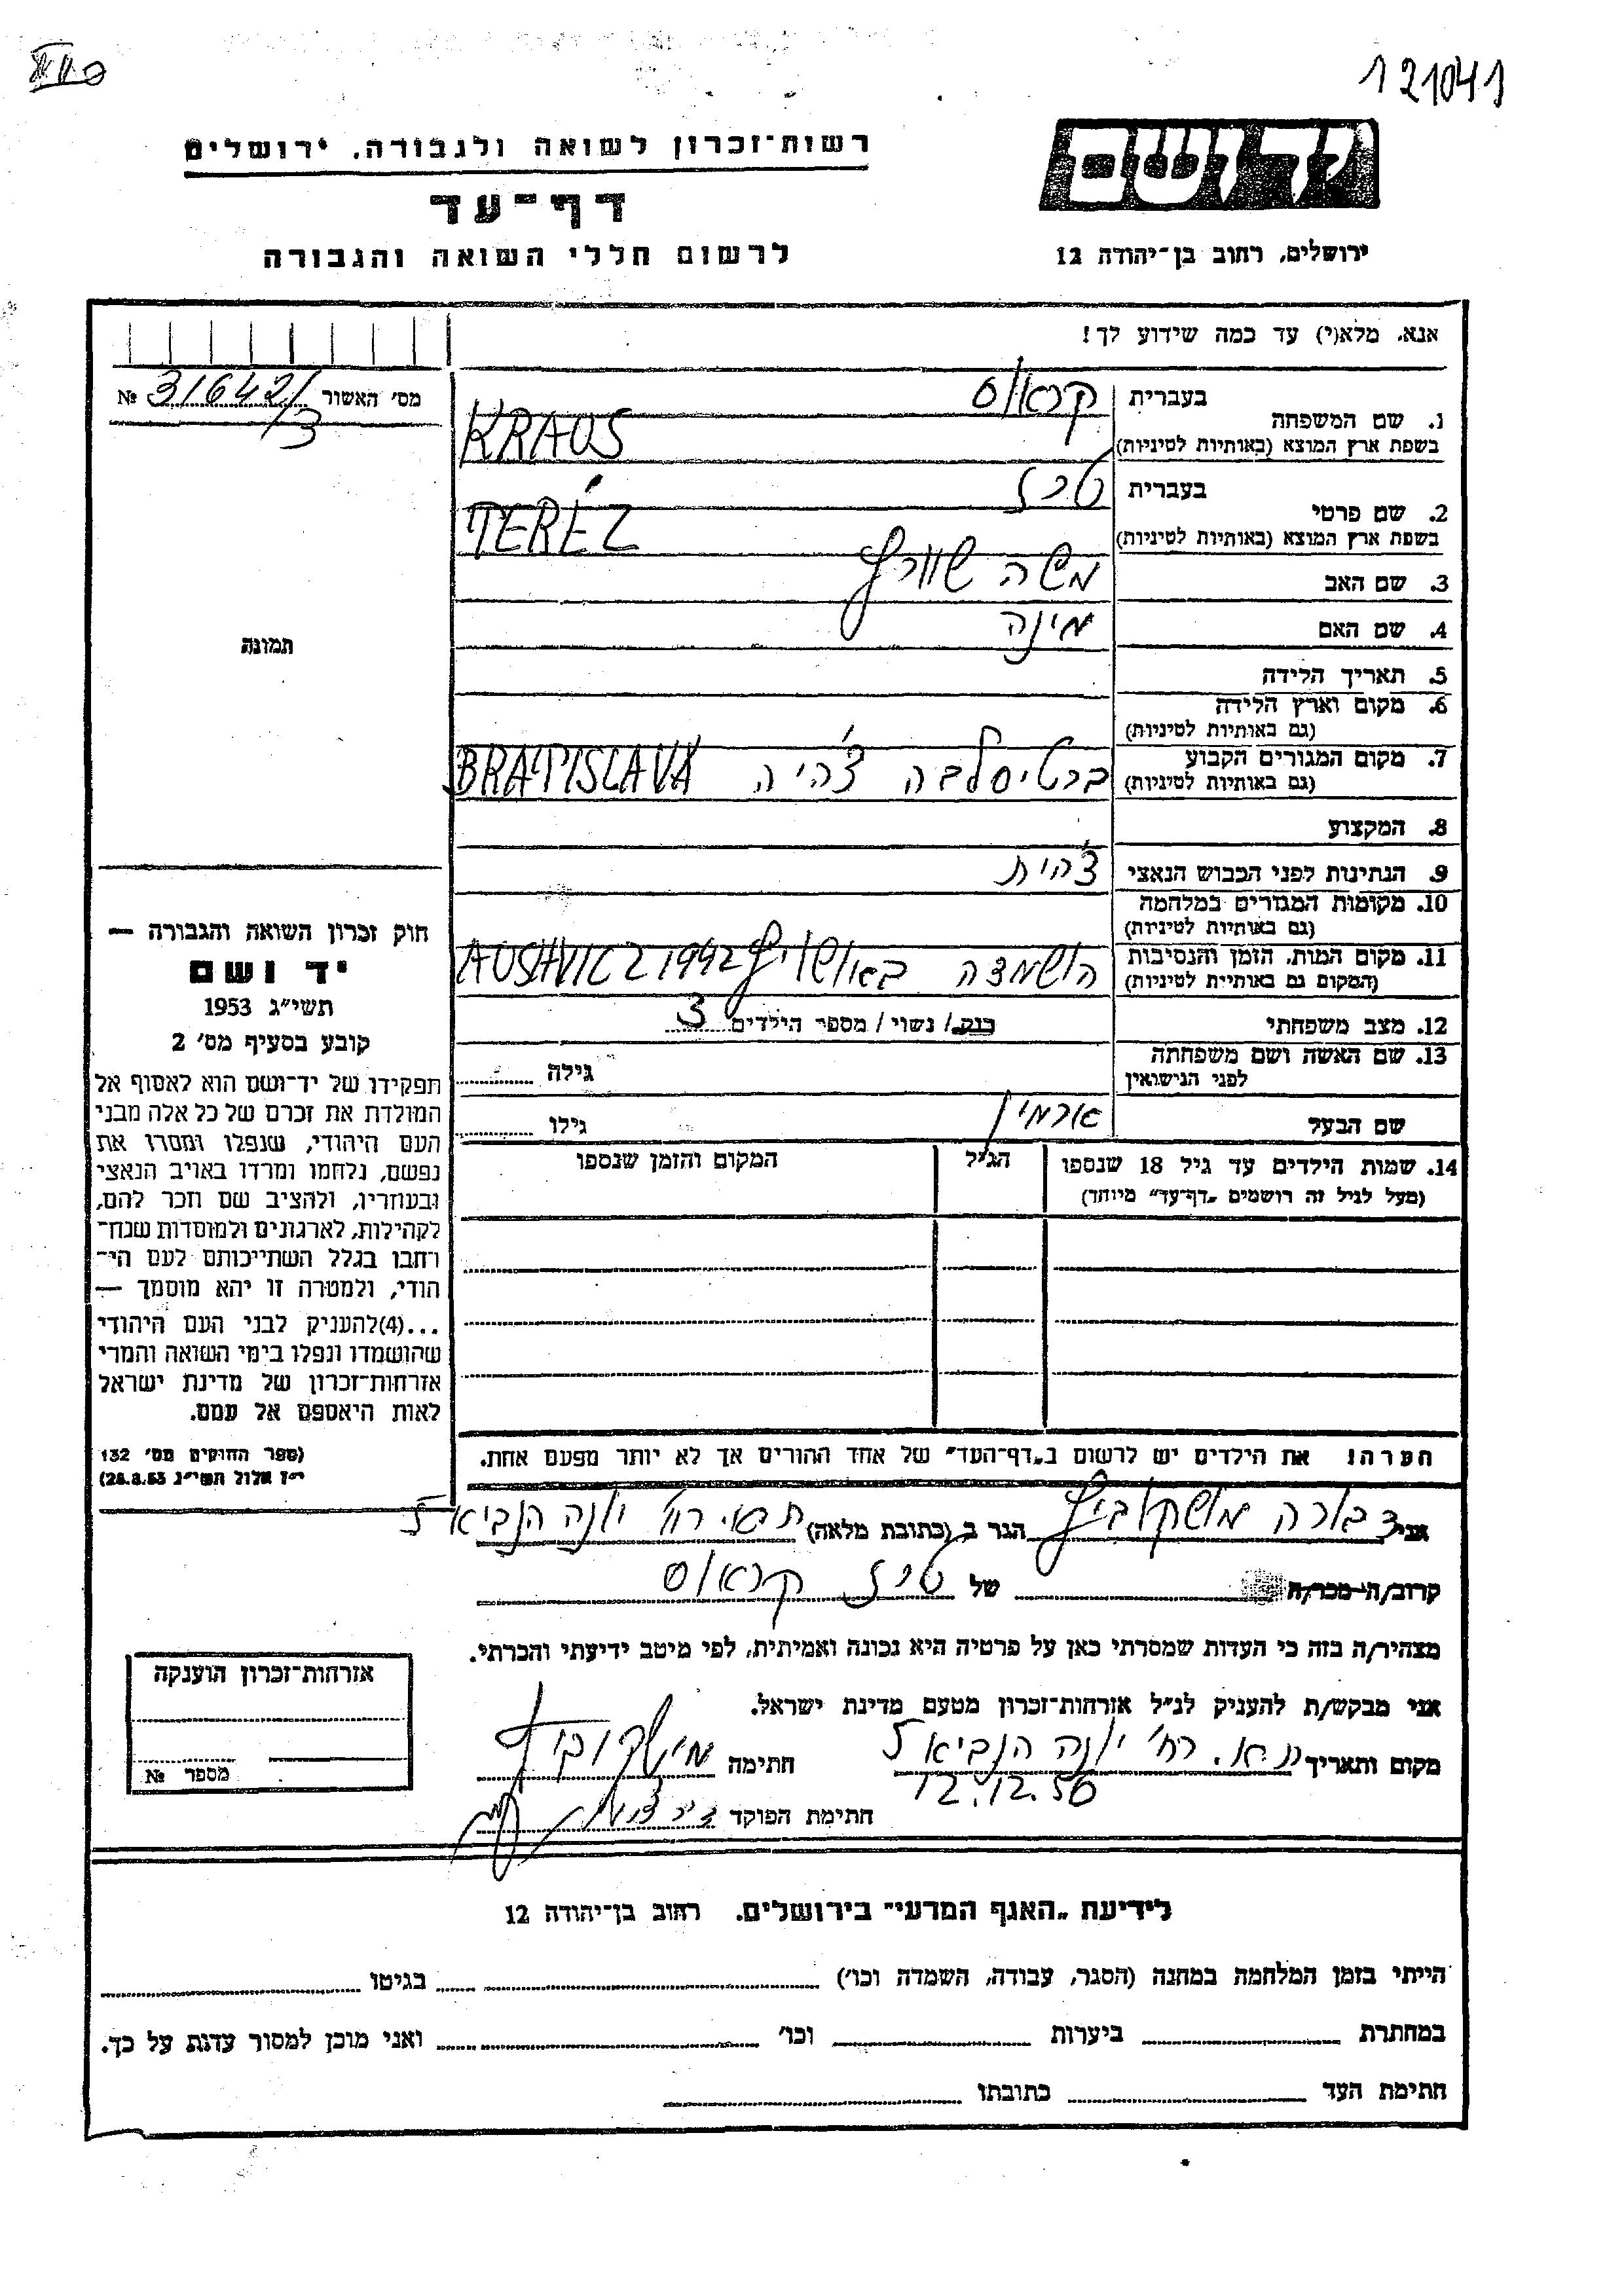 121041
רשות־זכרון לשואה ולגבורה, ירושלים
דף־עד
לרשום חללי השואה והגבורה
יד ושם
ירושלים, רחוב בן־יהודה 12
אנא, מלא(י) עד כמה שידוע לך!
מס׳ האשור 31642/3 №
1. שם המשפחה
בעברית קראוס
בשפת ארץ המוצא (באותיות לטיניות) KRAUS
2. שם פרטי
בעברית טרז
בשפת ארץ המוצא (באותיות לטיניות) TERÉZ
3. שם האב משה שוורץ
4. שם האם מינה
5. תאריך הלידה
6. מקום וארץ הלידה
(גם באותיות לטיניות)
7. מקום המגורים הקבוע ברטיסלבה צ׳היה BRATISLAVA
(גם באותיות לטיניות)
8. המקצוע
9. הנתינות לפני הכבוש הנאצי צ׳הית
10. מקומות המגורים במלחמה
(גם באותיות לטיניות)
11. מקום המות, הזמן והנסיבות הושמדה באושויץ 1942 AUSHVICZ
(המקום גם באותיות לטיניות)
12. מצב משפחתי רווק / נשוי / מספר הילדים 3
13. שם האשה ושם משפחתה
לפני הנישואין גילה
שם הבעל ארמין גילו
14. שמות הילדים עד גיל 18 שנספו הגיל המקום והזמן שנספו
(מעל לגיל זה רושמים „דף־עד״ מיוחד)
הערה! את הילדים יש לרשום ב„דף־העד״ של אחד ההורים אך לא יותר מפעם אחת.
תמונה
חוק זכרון השואה והגבורה —
יד ושם
תשי״ג 1953
קובע בסעיף מס׳ 2
תפקידו של יד־ושם הוא לאסוף אל
המולדת את זכרם של כל אלה מבני
העם היהודי, שנפלו ומסרו את
נפשם, נלחמו ומרדו באויב הנאצי
ובעוזריו, ולהציב שם וזכר להם,
לקהילות, לארגונים ולמוסדות שנח־
רבו בגלל השתייכותם לעם הי־
הודי, ולמטרה זו יהא מוסמך —
...(4)להעניק לבני העם היהודי
שהושמדו ונפלו בימי השואה והמרי
אזרחות־זכרון של מדינת ישראל
לאות היאספם אל עמם.
(ספר החוקים מס׳ 132
י״ז אלול תשי״ג 28.8.53)
אני דבורה מושקוביץ הגר ב (כתובת מלאה) ת״א רח׳ יונה הנביא 5
קרוב/ה מכר/ה של טרז קראוס
מצהיר/ה בזה כי העדות שמסרתי כאן על פרטיה היא נכונה ואמיתית, לפי מיטב ידיעתי והכרתי.
אני מבקש/ת להעניק לנ״ל אזרחות־זכרון מטעם מדינת ישראל.
מקום ותאריך ת.א. רח׳ יונה הנביא 5 חתימה מושקוביץ
12.12.56
חתימת הפוקד
אזרחות־זכרון הוענקה
מספר №
לידיעת „האגף המדעי״ בירושלים, רחוב בן־יהודה 12
הייתי בזמן המלחמה במחנה (הסגר, עבודה, השמדה וכו׳) בגיטו
במחתרת ביערות וכו׳ ואני מוכן למסור עדות על כך.
חתימת העד כתובתו